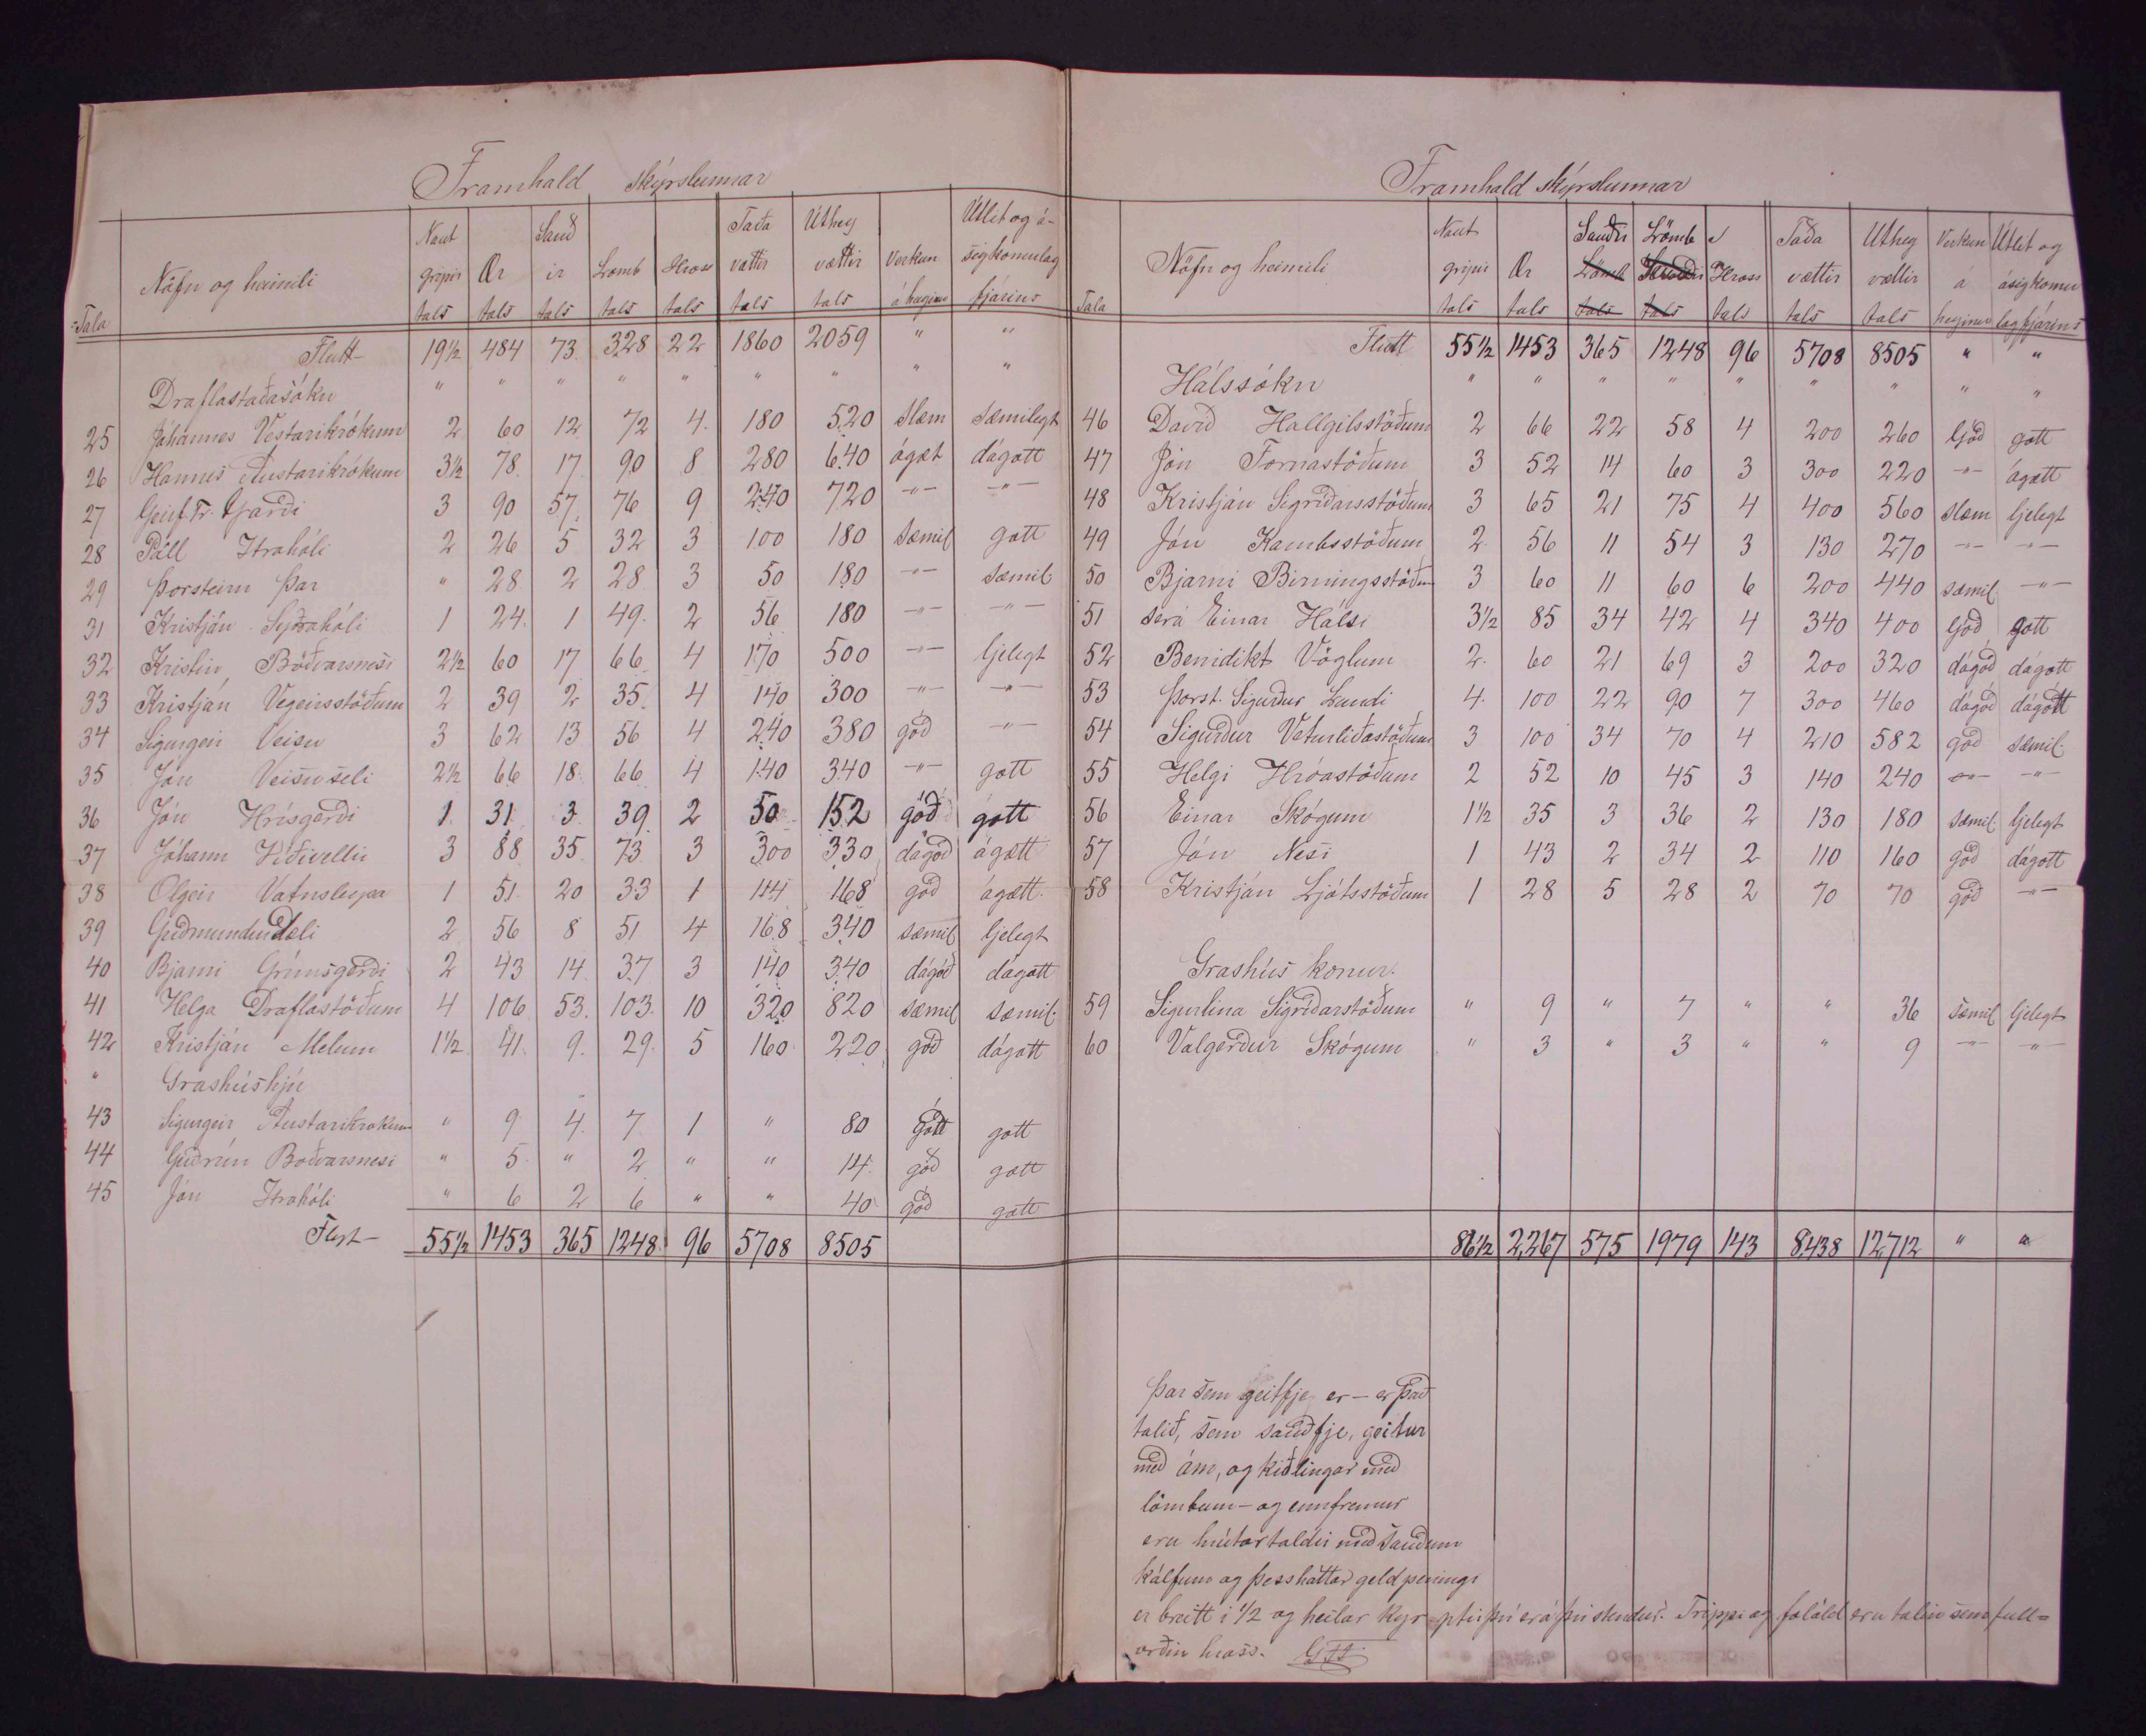 Framhald skýrslunnar
Tala Nöfn og heimili Nautgripir tals Ær tals Sauðir tals Lömb tals Hross tals Taða vættir tals Úthey vættir tals Verkun á heyinu Útlit og ásigkomulag fjárins
Flutt 19 1/2 484 73 328 22 1860 2059 " "
Draflastaðasókn " " " " " " " " "
25 Jóhannes Vestarikrókum 2 60 12 72 4 180 520 slæm sæmilegt
26 Hannes Austarikrókum 3 1/2 78 17 90 8 280 640 ágæt dágott
27 Geirf. Tr. Garði 3 90 57 76 9 240 720 -"- -"-
28 Páll Ytrahóli 2 26 5 32 3 100 180 sæmil gott
29 Þorsteinn Þar " 28 2 28 3 50 180 -"- sæmil
31 Kristján Syðrahóli 1 24 1 49 2 56 180 -"- -"-
32 Kristín Böðvarsnesi 2 1/2 60 17 66 4 170 500 -"- ljelegt
33 Kristján Vegeirsstöðum 2 39 2 35 4 140 300 -"- -"-
34 Sigurgeir Veisu 3 62 13 56 4 240 380 góð -"-
35 Jón Veisuseli 2 1/2 66 18 66 4 140 340 -"- gott
36 Jón Hrísgerði 1 31 3 39 2 50 152 góð gott
37 Jóhann Víðivellir 3 88 35 73 3 300 330 dágóð ágætt
38 Olgeir Vatnsleysa 1 51 20 33 1 144 168 góð ágætt
39 Guðmundur Dæli 2 56 8 51 4 168 340 sæmil ljelegt
40 Bjarni Grímsgerði 2 43 14 37 3 140 340 dágóð dágott
41 Helga Draflastöðum 4 106 53 103 10 320 820 sæmil sæmil.
42 Kristján Melum 1 1/2 41 9 29 5 160 220 góð dágott
" Grashúshjú
43 Sigurgeir Austarikrókum " 9 4 7 1 " 80 gótt gott
44 Guðrún Boðvarsnesi " 5 " 2 " " 14 góð gott
45 Jón Ytrahóli " 6 2 6 " " 40 góð gott
Flyt 55 1/2 1453 365 1248 96 5708 8505
Framhald skýrslunnar
Tala Nöfn og heimili Nautgripir tals Ær tals Sauðir Lömb tals Lömb Sauðir tals Hross tals Taða vættir tals Úthey vættir tals Verkun á heyinu Útlit og ásigkomulag fjárins
Flutt 55 1/2 1453 365 1248 96 5708 8505 " "
Hálssókn " " " " " " " " "
46 Davíð Hallgilsstöðum 2 66 22 58 4 200 260 góð gott
47 Jón Fornastöðum 3 52 14 60 3 300 220 -"- ágætt
48 Kristján Sigríðarsstöðum 3 65 21 75 4 400 560 slæm ljelegt
49 Jón Kambsstöðum 2 56 11 54 3 130 270 -"- -"-
50 Bjarni Birningsstöðum 3 60 11 60 6 200 440 sæmil -"-
51 séra Einar Hálsi 3 1/2 85 34 42 4 340 400 góð gott
52 Benidikt Vöglum 2 60 21 69 3 200 320 dágóð dágott
53 Þorst. Sigurður Lundi 4 100 22 90 7 300 460 dágóð dágott
54 Sigurður Veturliðastöðum 3 100 34 70 4 210 582 góð sæmil.
55 Helgi Hróastöðum 2 52 10 45 3 140 240 -"- -"-
56 Einar Skógum 1 1/2 35 3 36 2 130 180 sæmil. ljelegt
57 Jón Nesi 1 43 2 34 2 110 160 góð dágott
58 Kristján Ljótsstöðum 1 28 5 28 2 70 70 góð -"-
Grashús konur.
59 Sigurlína Sigríðarstöðum " 9 " 7 " " 36 sæmil ljelegt
60 Valgerður Skógum " 3 " 3 " " 9 -"- -"-
86 1/2 2,267 575 1979 143 8,438 12,712 " "
Þar sem geitfje er – er það
talið, sem sauðfje, geitur
með ám, og kiðlingar með
lömbum – og ennfremur
eru hrútar taldir með sauðum
kálfum og þessháttar geldpeningi
er breitt í 1/2 og heilar kyr eptir því er á því stendur. Trippi og folöld eru talin sem full=
orðin hross.